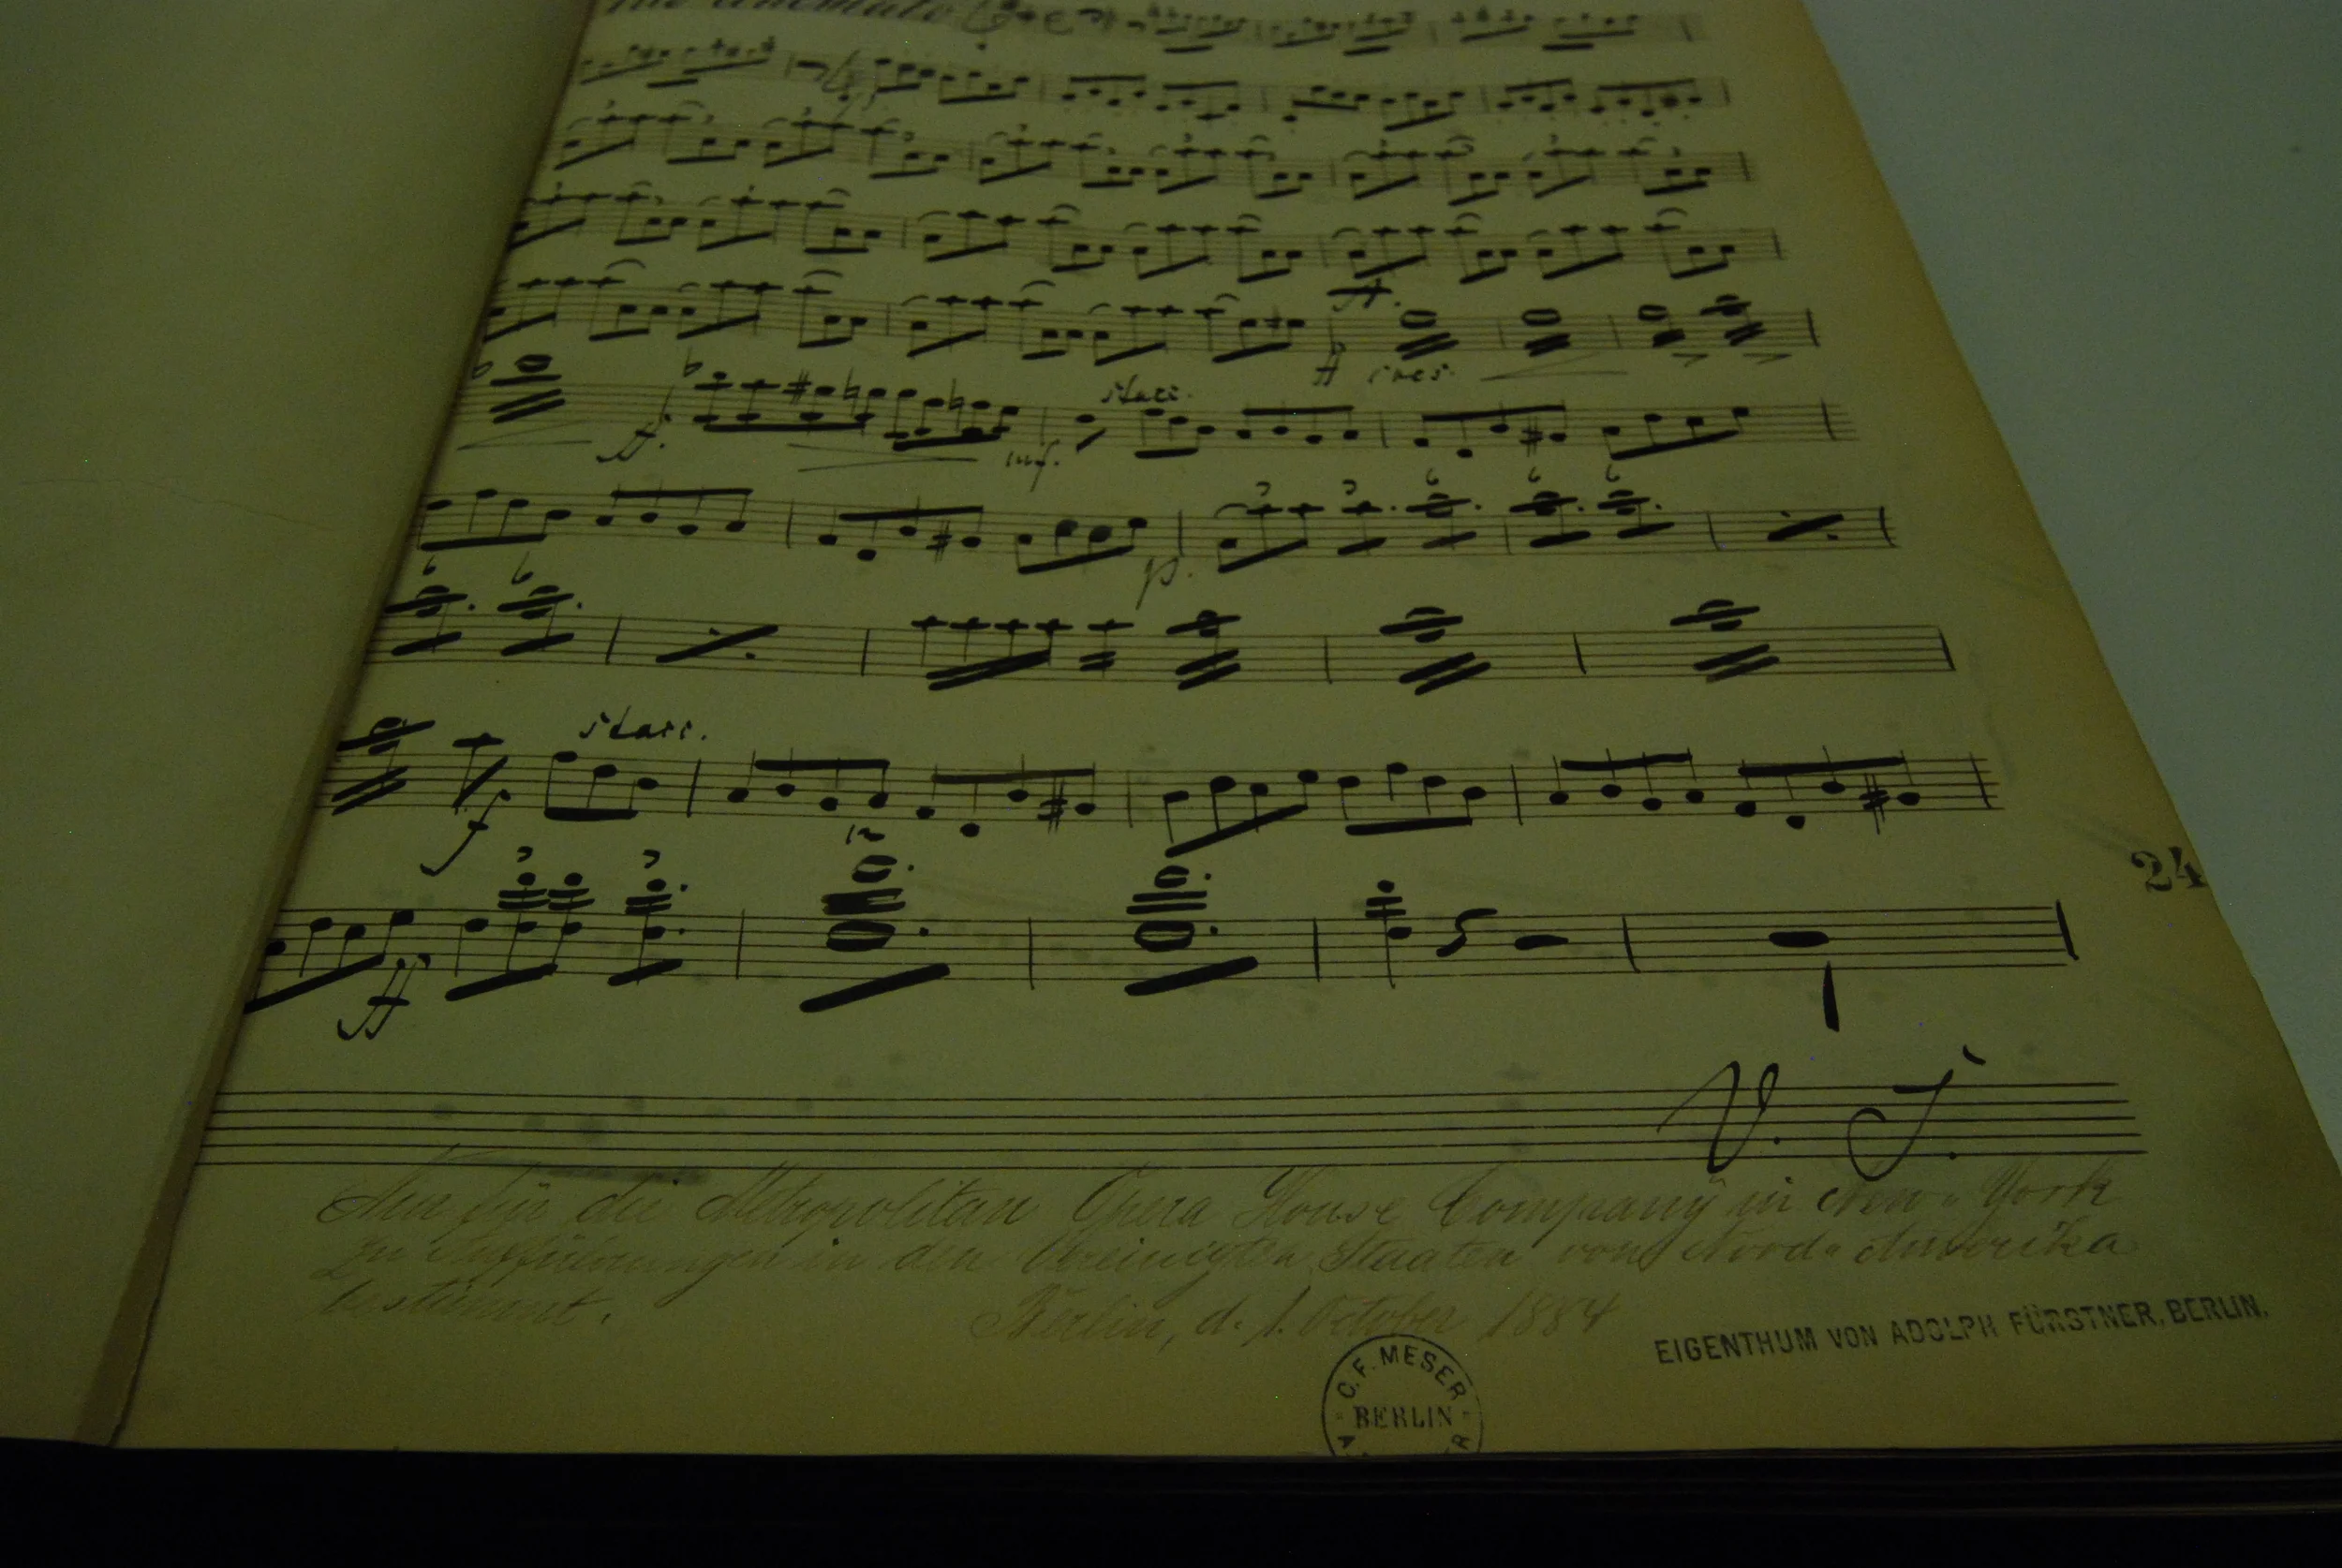 animato
ff cres.
ff. mf. stacc.
3 3 6 6 6
p.
6 6
stacc.
f
12
3 3
ff
24
V. S.
Nur für die Metropolitan Opera House Company in New-York
zu Aufführungen in den Vereinigten Staaten von Nord-Amerika
bestimmt.
Berlin, d. 1. October 1884
EIGENTHUM VON ADOLPH FÜRSTNER, BERLIN.
C. F. MESER
BERLIN